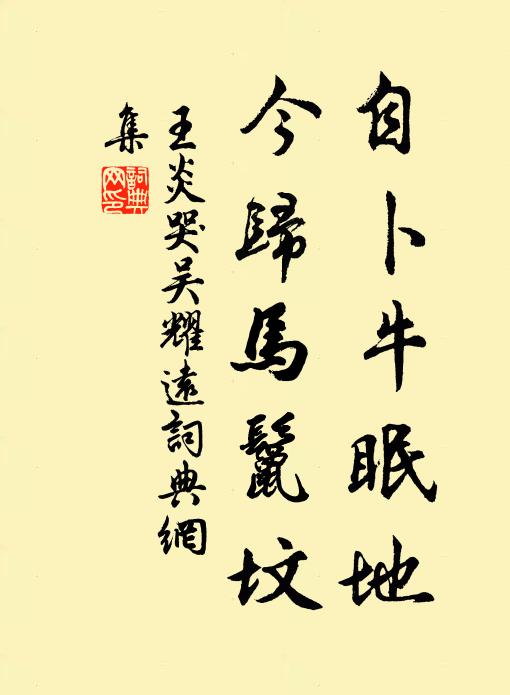 自卜牛眠地
今歸馬鬣墳
王炎哭吴耀遠詞典網
集
詞典
网印